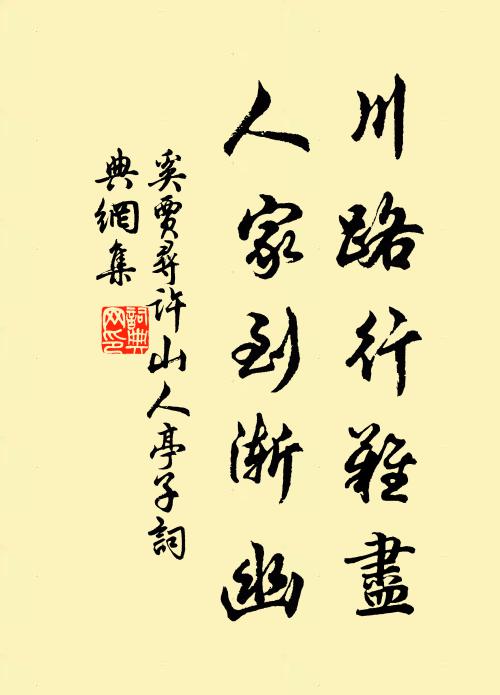 川路行難盡
人家到漸幽
奚賈尋許山人亭子詞
典網集
詞典
网印